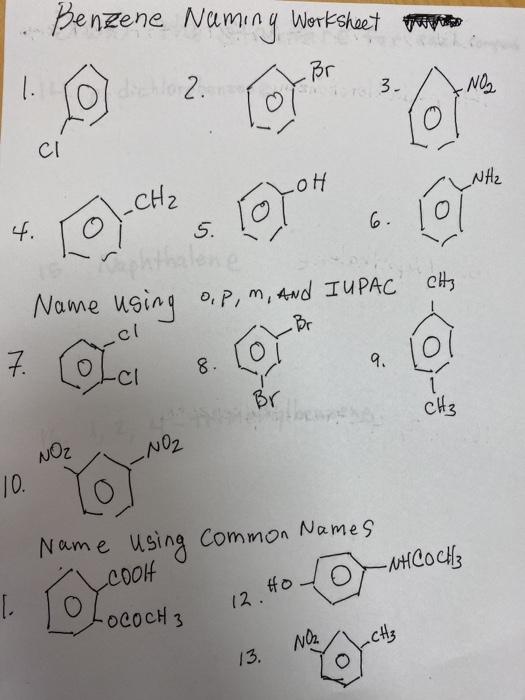 Benzene Naming Worksheet
1. Cl
2. Br
3- NO2
4. CH2
5. OH
6. NH2
Name Using o, p, m, And IUPAC
7. Cl Cl
8. Br Br
9. CH3 CH3
10. NO2 NO2
Name Using Common Names
1. COOH OCOCH3
12. HO NHCOCH3
13. NO2 CH3